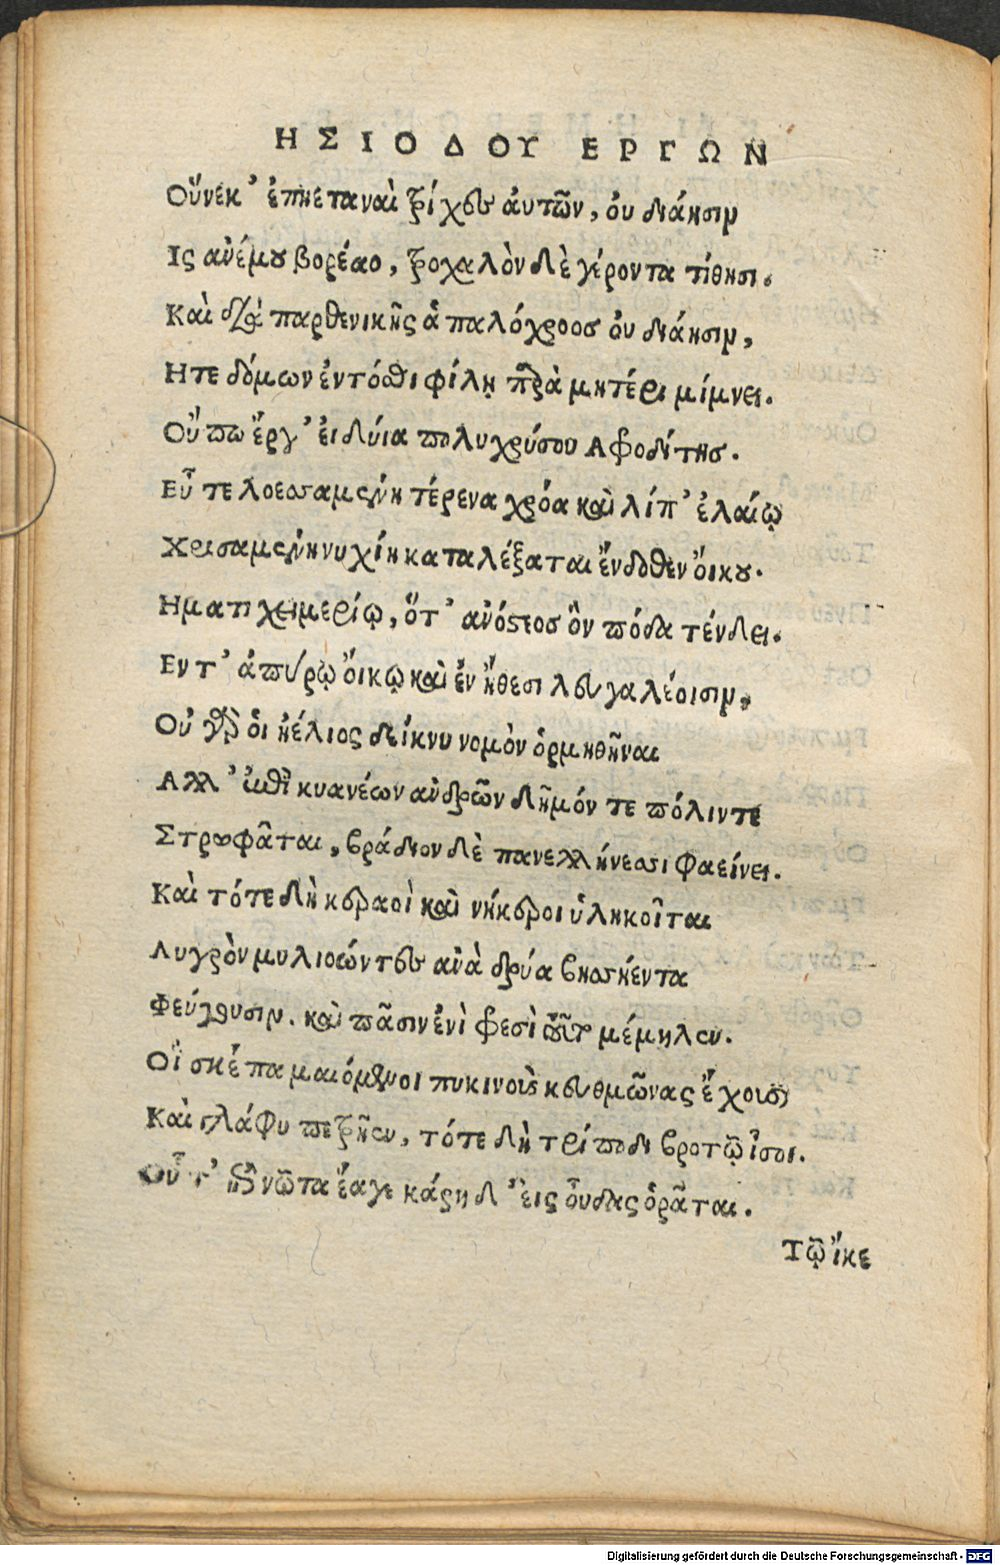 ΗΣΙΟΔΟΥ ΕΡΓΩΝ
Οὕνεκ' ἐπηεταναὶ τρίχες ἀυτῶν, ὀυ διάησιν
Ις ανέμου βορέαο, τροχαλὸν δὲ γέροντα τίθησι.
Καὶ διὰ παρθενικῆς ἁπαλόχροος ὀυ διάησιν,
Ητε δόμων ἐντόσθι φίλῃ παρὰ μητέρι μίμνει.
Οὔπω ἔργ' ἐιδυία πολυχρύσου Αφροδίτης.
Εὖ τε λοεσσαμένη τέρενα χρόα καὶ λίπ' ἐλαίῳ
Χρισαμένη νυχίη καταλέξαται ἔνδοθεν ὄικου.
Ηματι χειμερίῳ, ὅτ' ανόστεος ὃν πόδα τένδει.
Εν τ' ἀπύρῳ ὄικῳ καὶ ἐν ἤθεσι λευγαλέοισιν,
Οὐ γάρ ὁι ἠέλιος δείκνυ νομὸν ὁρμηθῆναι
Αλλ' ἐπὶ κυανέων ανδρῶν δῆμόν τε πόλιν τε
Στρωφᾶται, βράδιον δὲ πανελλήνεσσι φαείνει.
Καὶ τότε δὴ κεραοὶ καὶ νήκεροι ὑληκοῖται
Λυγρὸν μυλιοώντες ανὰ δρύα βησσήεντα
Φεύγουσιν. καὶ πᾶσιν ἐνὶ φρεσὶ τοῦτο μέμηλεν.
Οἳ σκέπα μαιόμενοι πυκινοὺς κευθμῶνας ἔχουσι
Καὶ γλάφυ πετρῆεν, τότε δὴ τρίποδι βροτῷ ἶσοι.
Οὗτ' ἐπὶ νῶτα ἔαγε κάρη δ' ἐις οὖδας ὁρᾶται.
Τῷ ἴκε
Digitalisierung gefördert durch die Deutsche Forschungsgemeinschaft - DFG